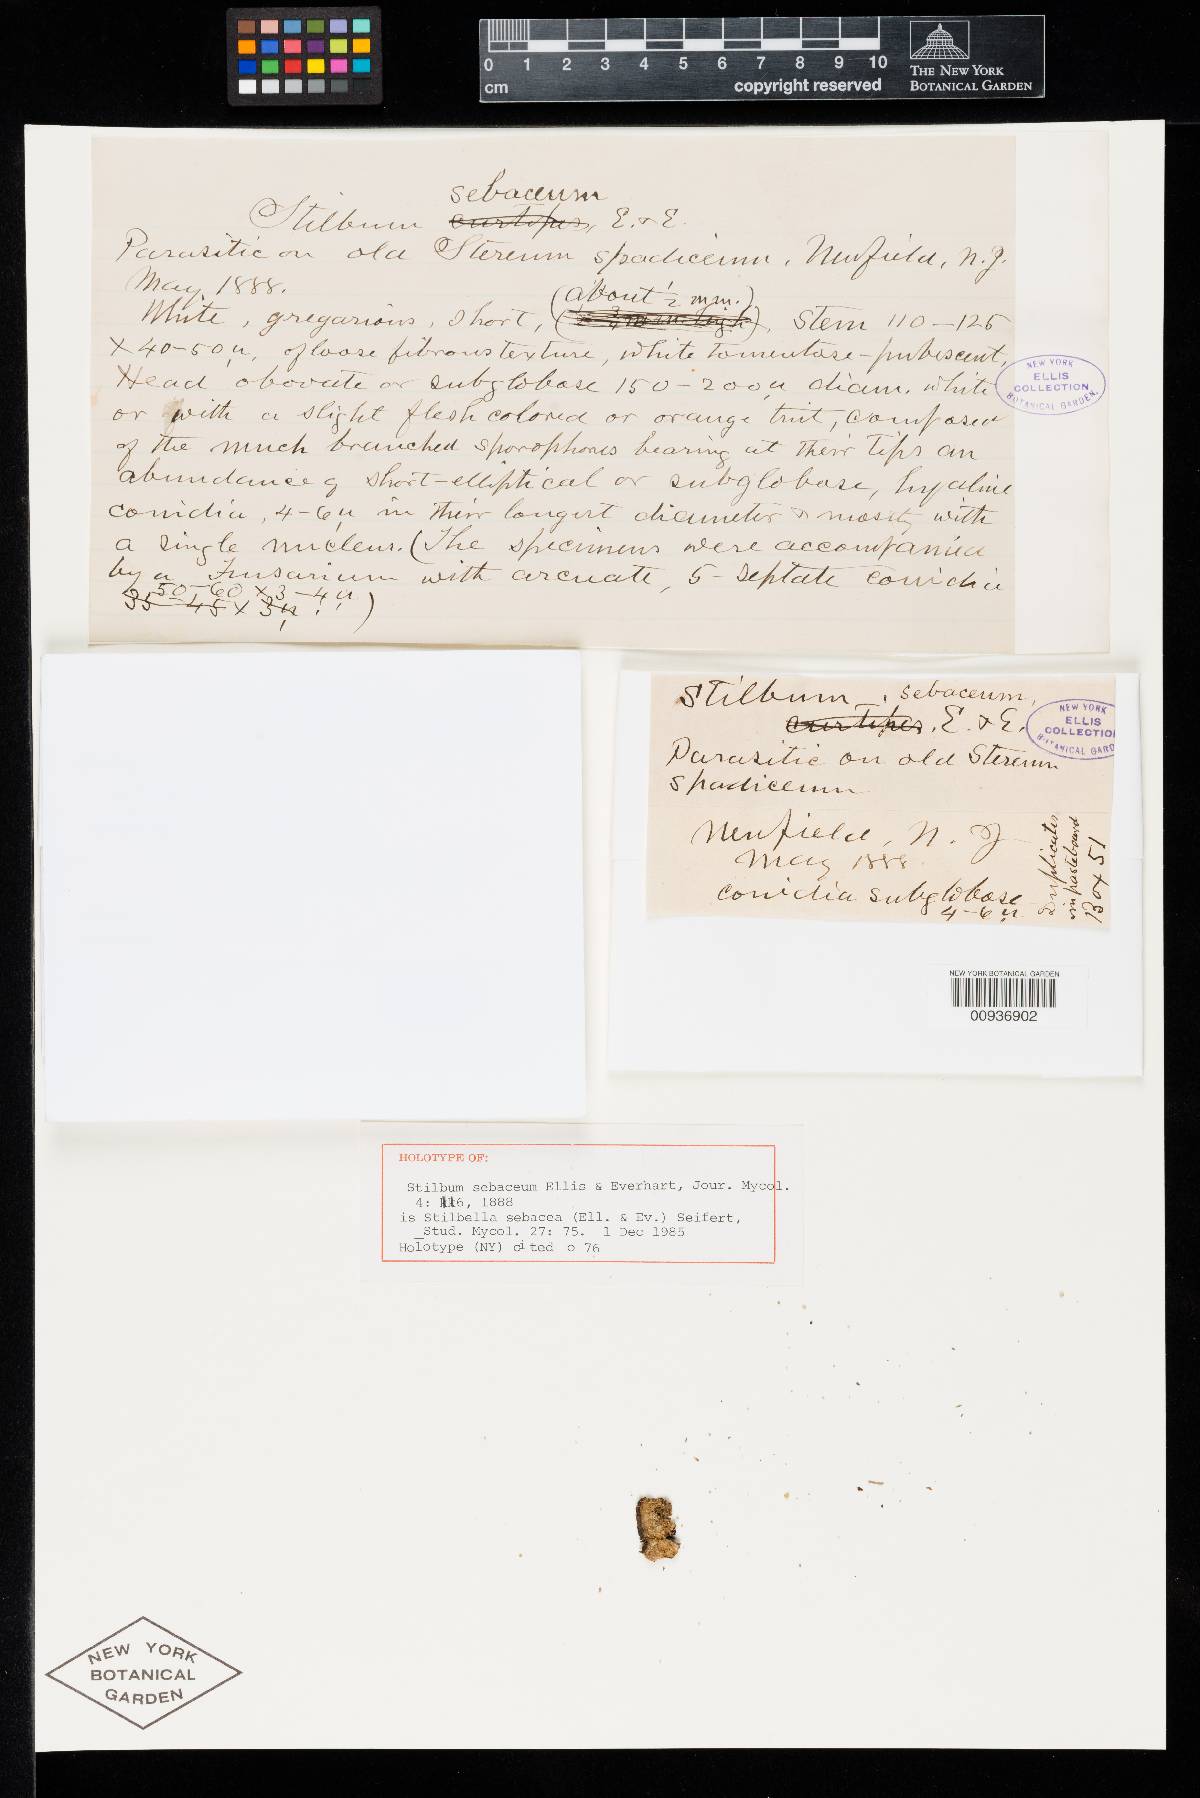 0 1 2 3 4 5 6 7 8 9 10
cm copyright reserved
THE NEW YORK
BOTANICAL GARDEN
sebaceum
Stilbum curtipes, E. & E.
Parasitic on old Stereum spadiceum, Newfield, N.J.
May 1888.
(about ½ mm.)
White, gregarious, short, Stem 110-125
X 40-50µ, of loose fibrous texture, white tomentose-pubescent,
Head obovate or subglobose 150-200µ diam. white
or with a slight flesh colored or orange tint, composed
of the much branched sporophores bearing at their tips an
abundance of short-elliptical or subglobose, hyaline
conidia, 4-6µ in their longest diameter & mostly with
a single nucleus. (The specimens were accompanied
by a Fusarium with arcuate, 5-septate conidia
50-60 x 3-4µ
35-45 x 3µ.)
NEW YORK
ELLIS
COLLECTION
BOTANICAL GARDEN.
Stilbum, sebaceum,
curtipes, E. & E.
Parasitic on old Stereum
spadiceum
Newfield, N. J
May 1888
conidia subglobose
4-6µ
Duplicates
in pasteboard
Box 51
NEW YORK
ELLIS
COLLECTIO
BOTANICAL GARD
NEW YORK BOTANICAL GARDEN
00936902
HOLOTYPE OF:
Stilbum sebaceum Ellis & Everhart, Jour. Mycol.
4: 116, 1888
is Stilbella sebacea (Ell. & Ev.) Seifert,
Stud. Mycol. 27: 75. 1 Dec 1985
Holotype (NY) cited p 76
NEW YORK
BOTANICAL
GARDEN